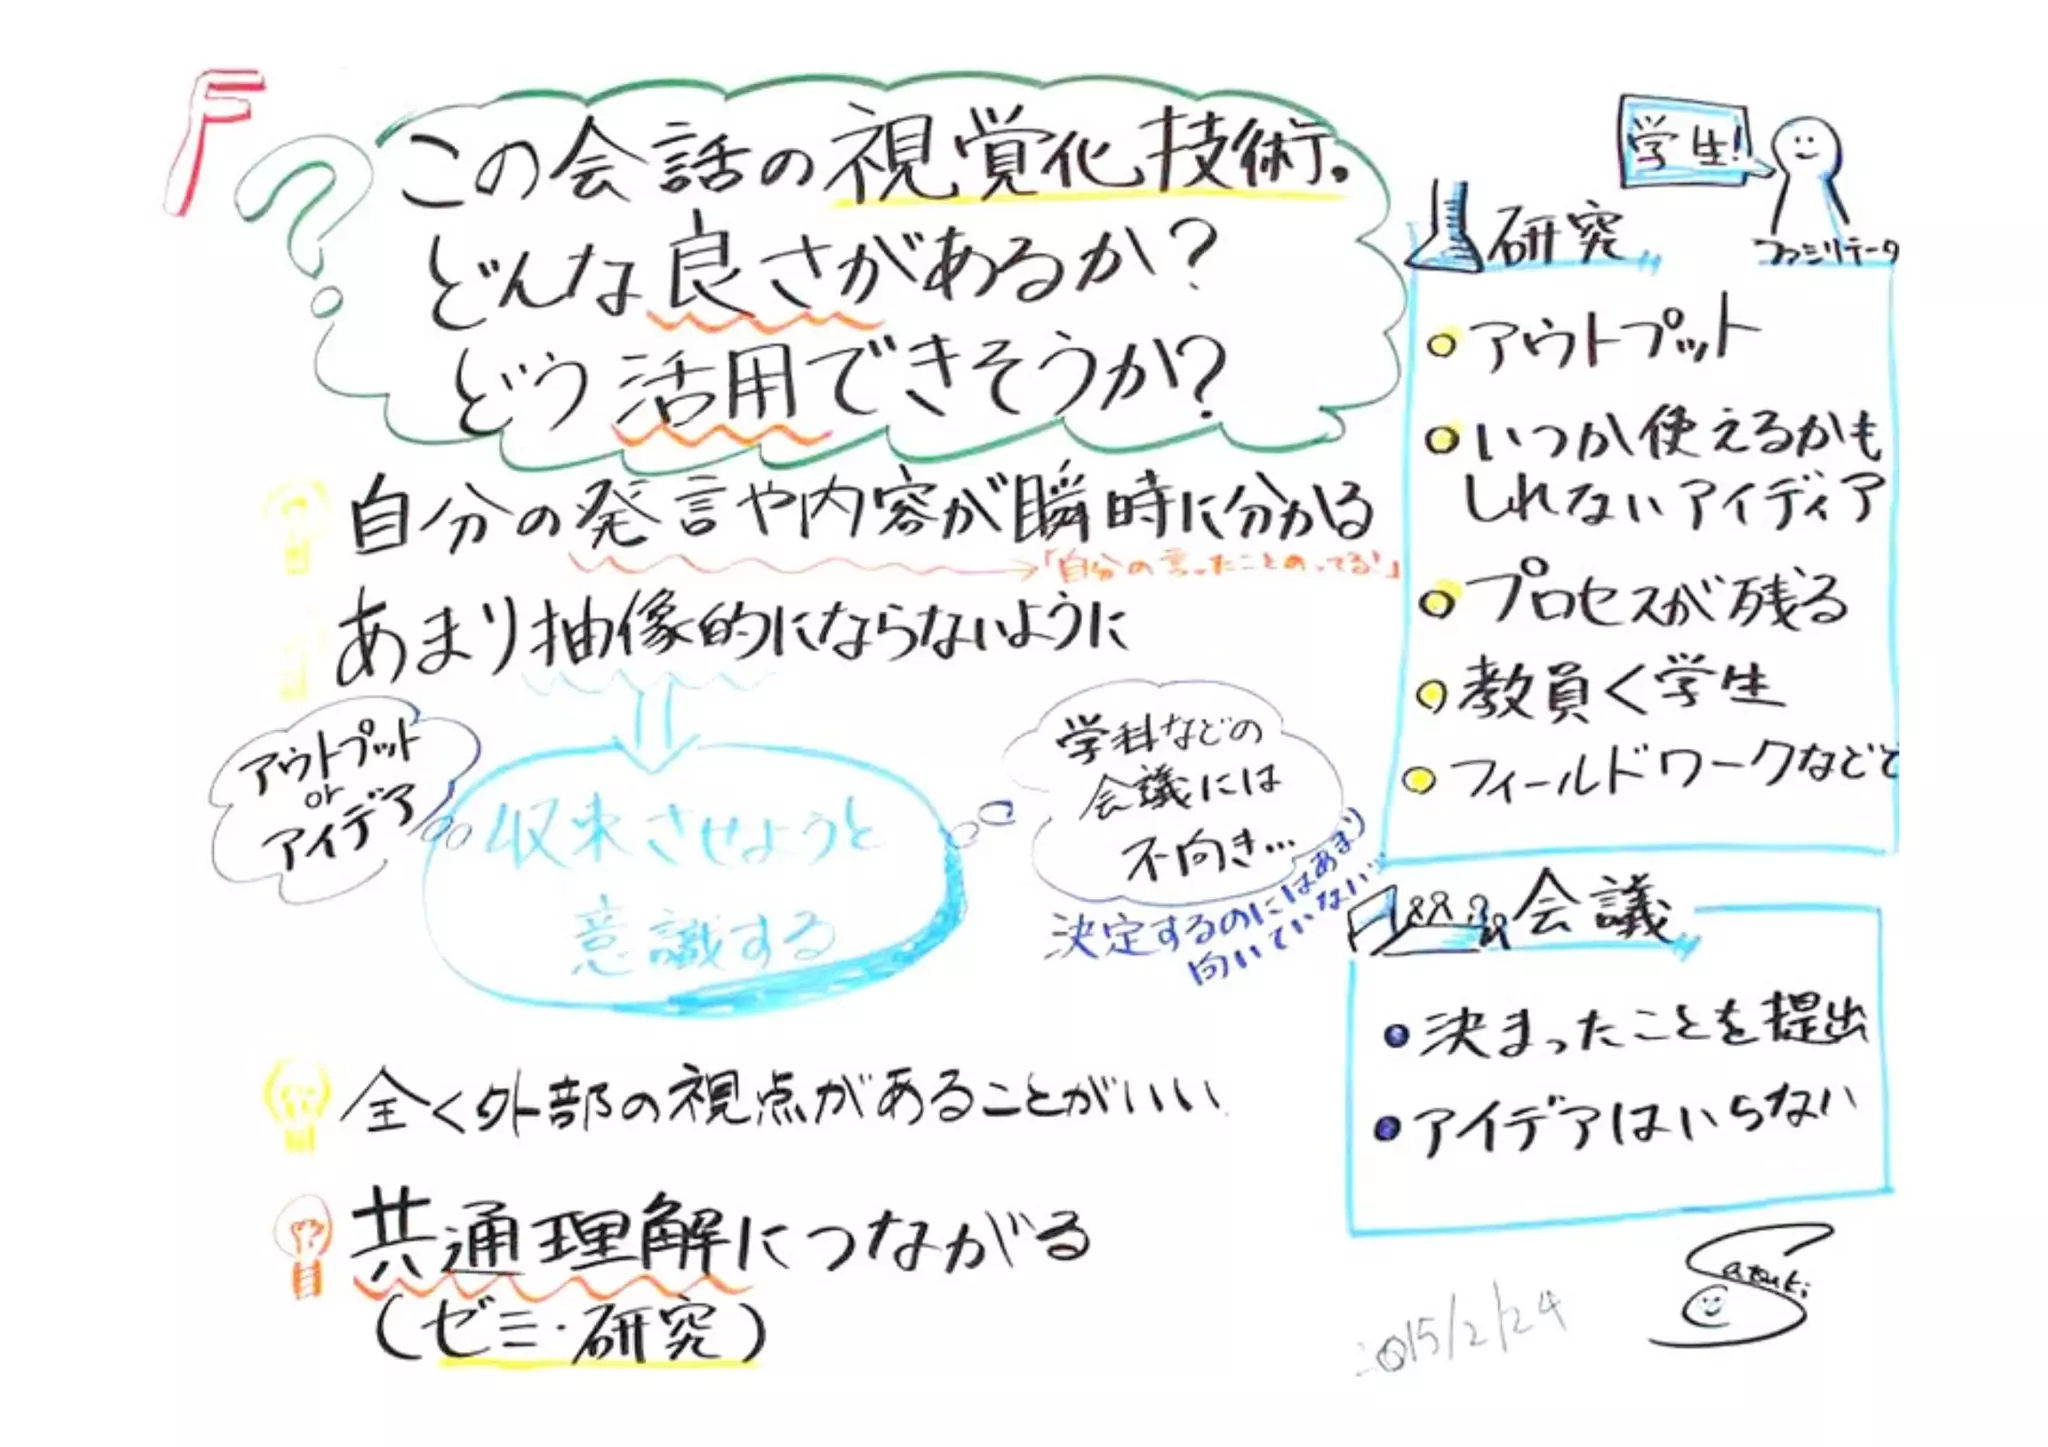 F
?
この会話の視覚化技術。
どんな良さがあるか?
どう活用できそうか?
自分の発言や内容が瞬時に分かる
「自分の言ったことのってる!」
あまり抽像的にならないように
アウトプット
or
アイデア
収束させようと
意識する
学科などの
会議には
不向き…
決定するのにはあまり
向いていない…
全く外部の視点があることがいい
共通理解につながる
(ゼミ・研究)
学生!
ファシリテータ
研究
アウトプット
いつか使えるかも
しれないアイディア
プロセスが残る
教員く学生
フィールドワークなどで
会議
決まったことを提出
アイデアはいらない
Satsuki
2015/2/24